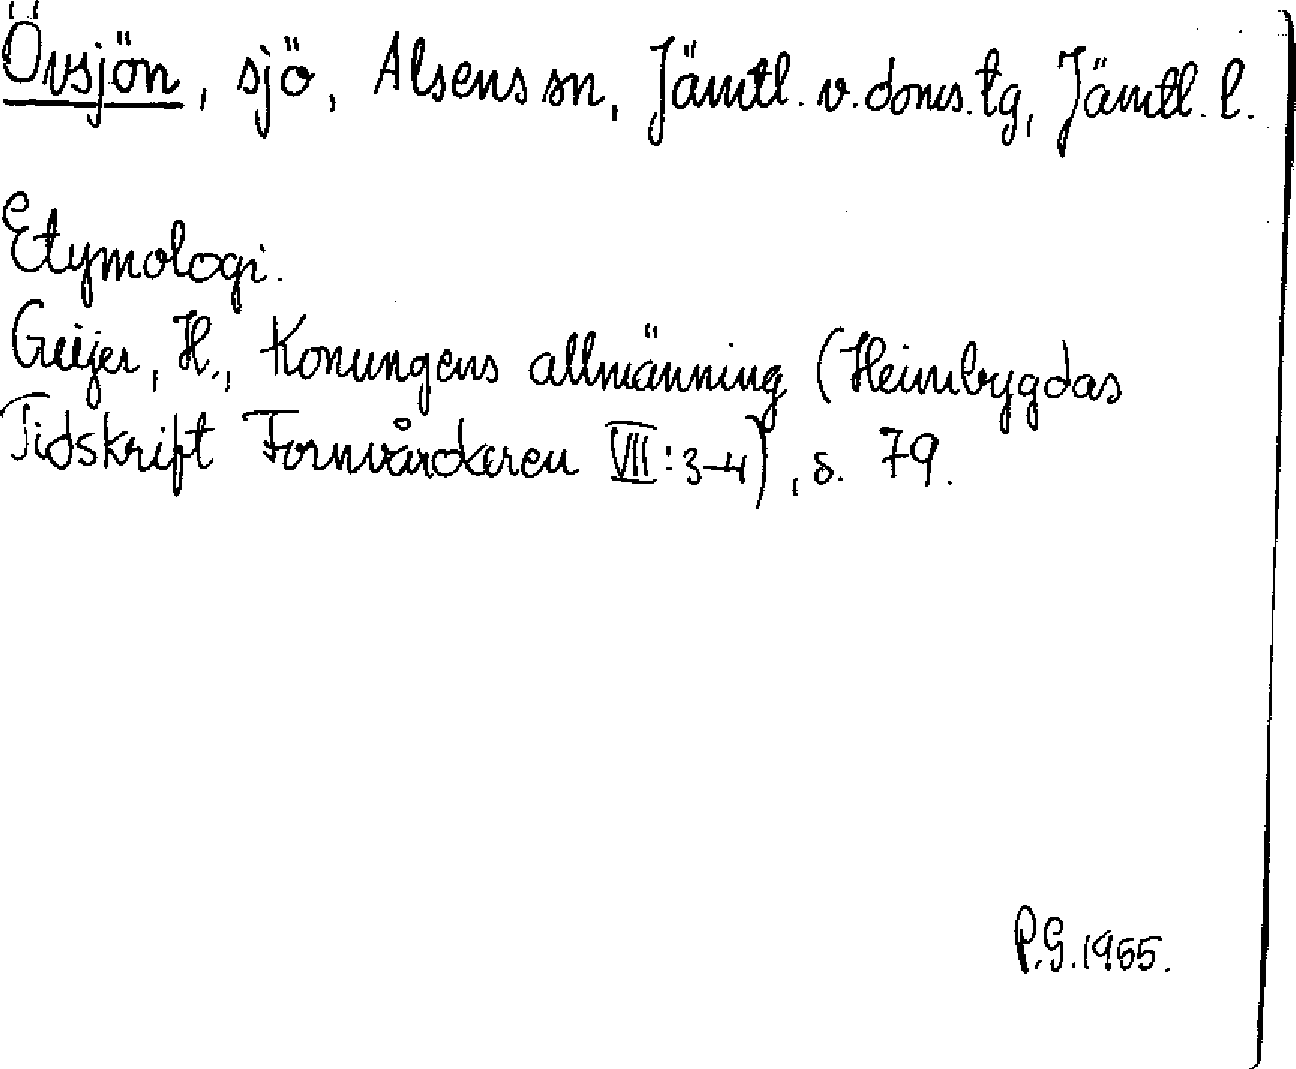 Övsjön, sjö, Alsens sn, Jämtl. v. doms. tg, Jämtl. l.
Etymologi.
Geijer, H., Konungens allmänning (Heimbygdas
Tidskrift Fornvårdaren VII:3-4), s. 79.
P.G. 1955.